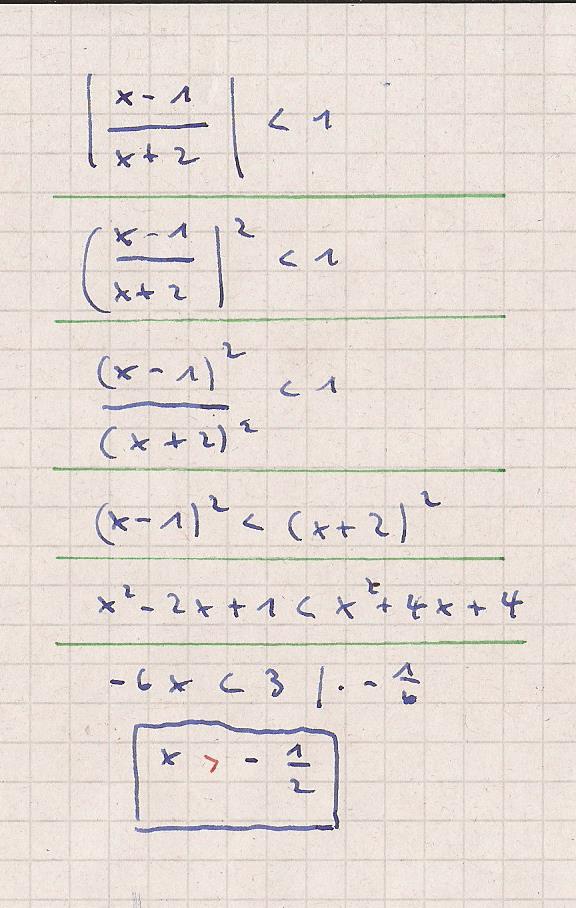 | (x - 1)/(x + 2) | < 1
( (x - 1)/(x + 2) |² < 1
(x - 1)²/(x + 2)² < 1
(x - 1)² < (x + 2)²
x² - 2x + 1 < x² + 4x + 4
-6x < 3 | · - 1/6
x > - 1/2